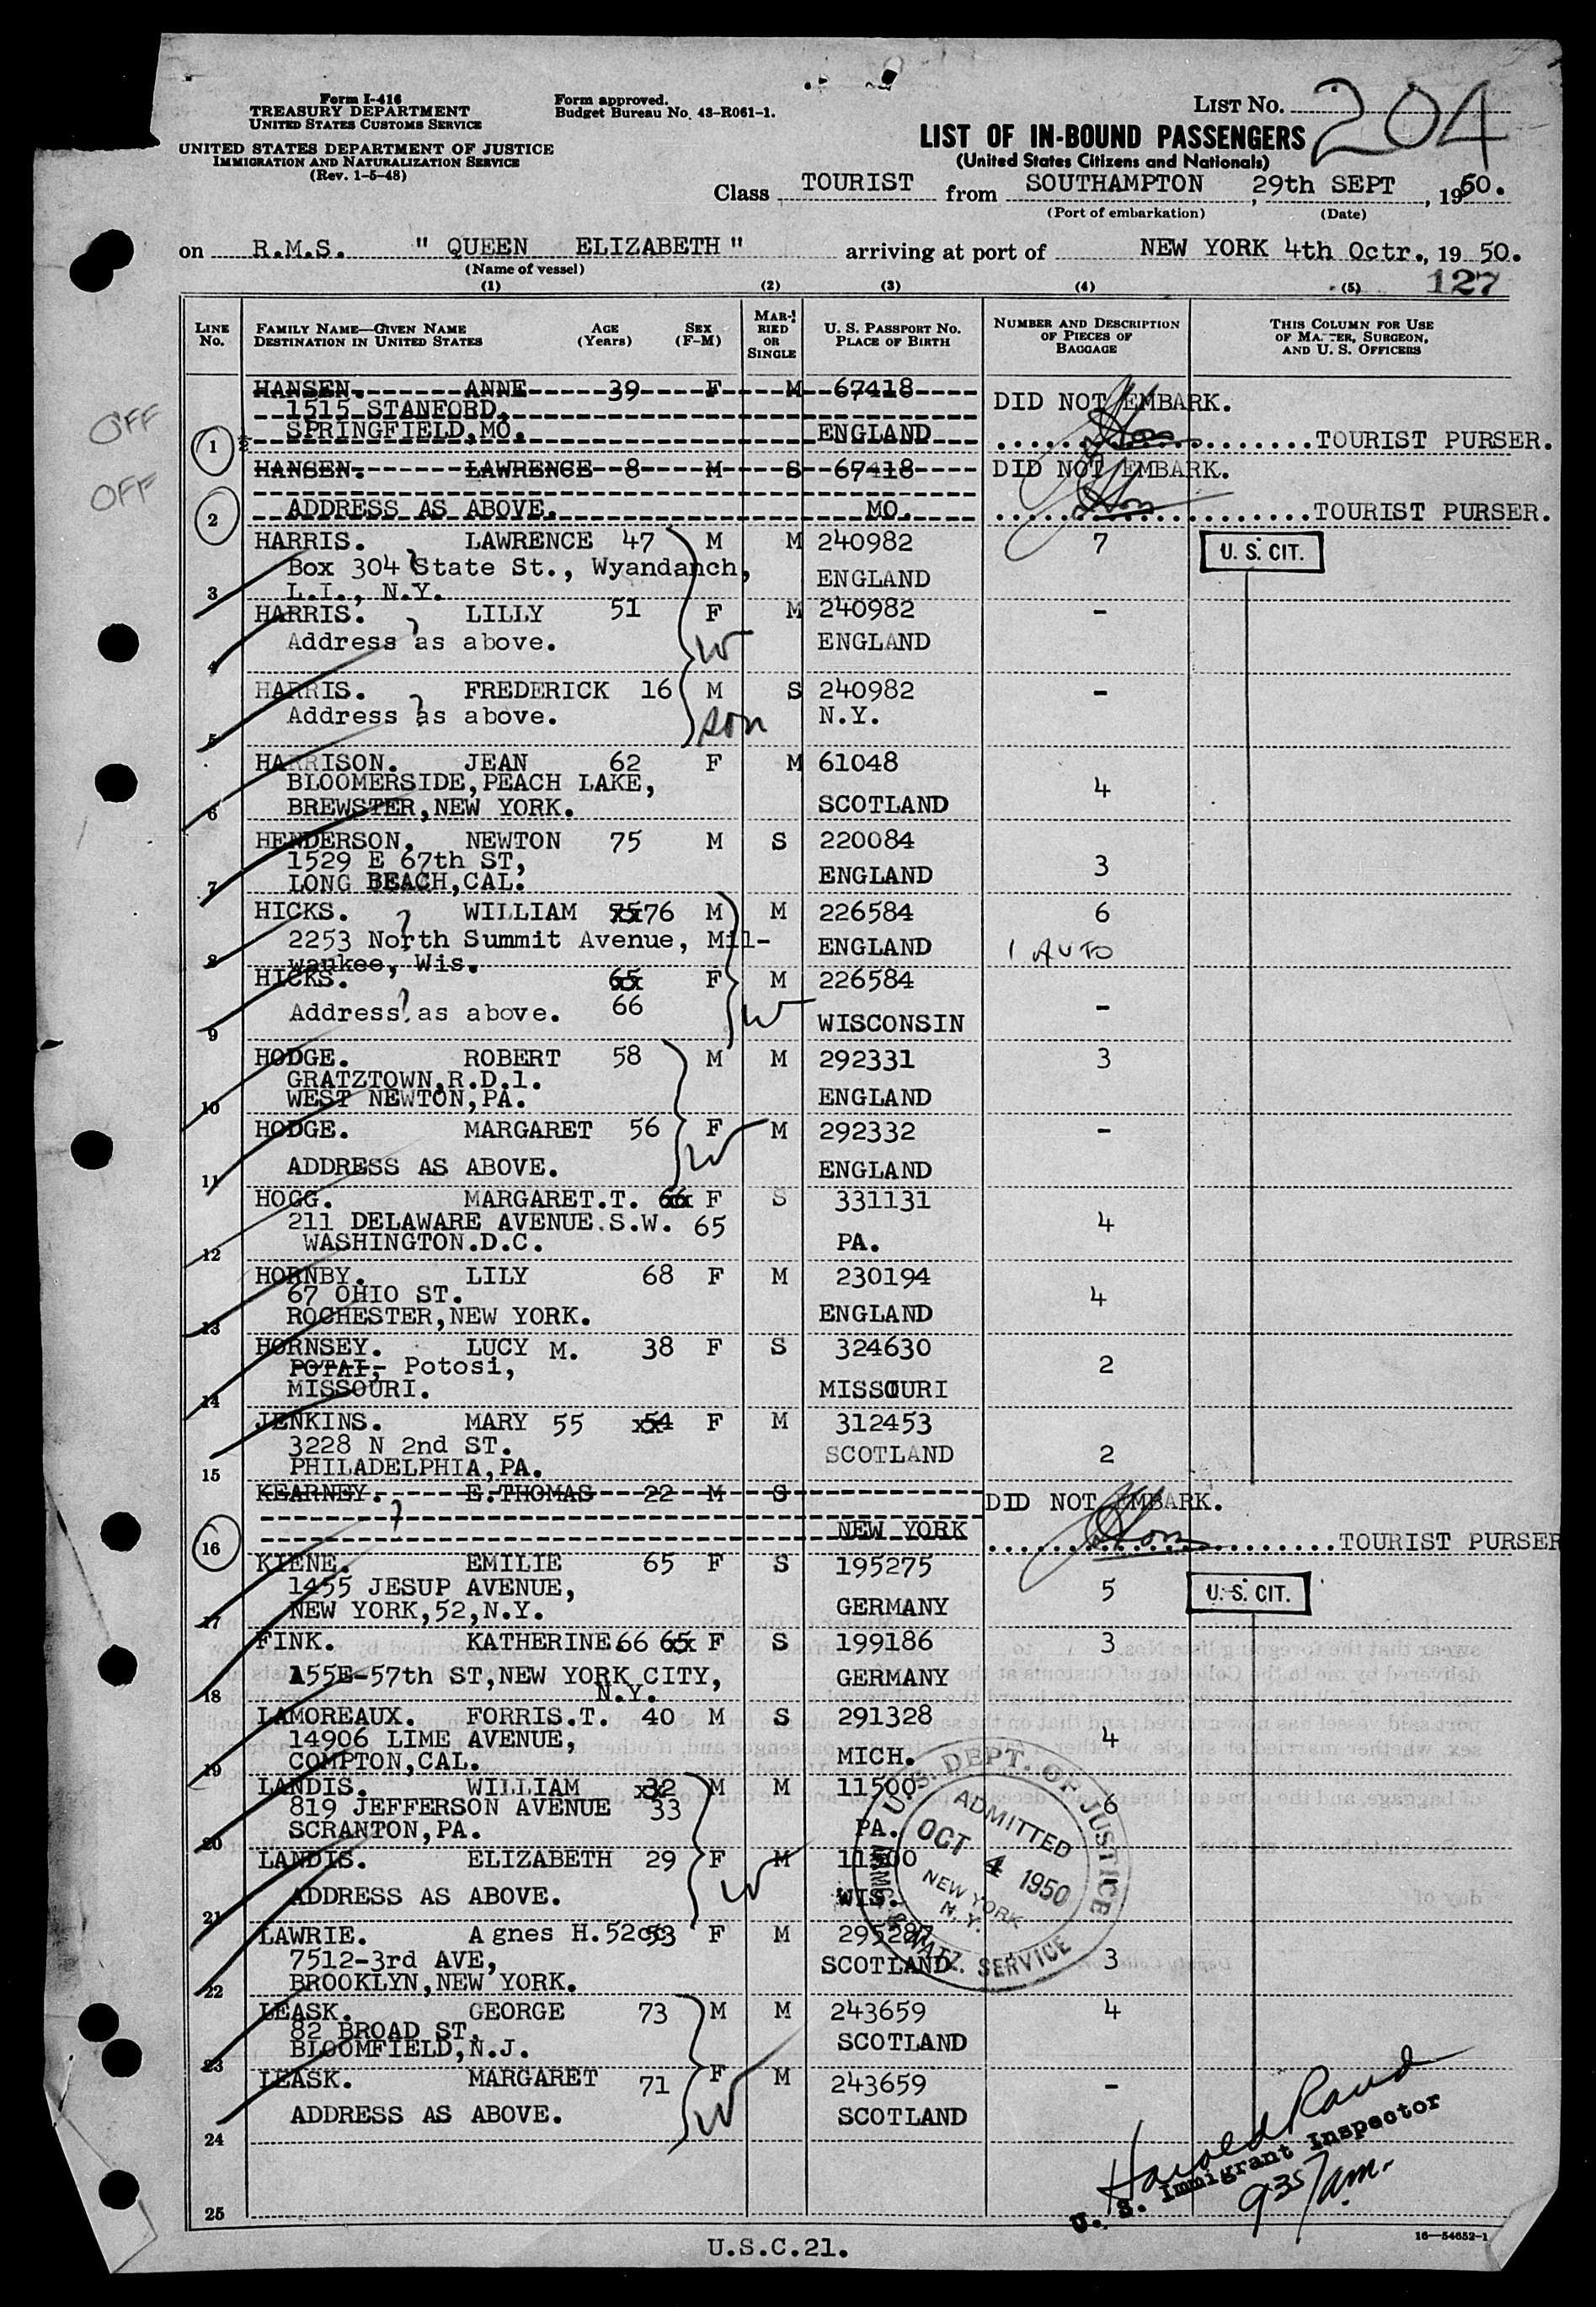 Form I-416
TREASURY DEPARTMENT
UNITED STATES CUSTOMS SERVICE
UNITED STATES DEPARTMENT OF JUSTICE
IMMIGRATION AND NATURALIZATION SERVICE
(Rev. 1-5-48)
Form approved.
Budget Bureau No. 43-R061-1.
LIST No. 204
LIST OF IN-BOUND PASSENGERS
(United States Citizens and Nationals)
Class TOURIST from SOUTHAMPTON, 29th SEPT, 1950.
(Port of embarkation) (Date)
on R.M.S. " QUEEN ELIZABETH " arriving at port of NEW YORK 4th Octr., 19 50.
(Name of vessel)
127
(1) (2) (3) (4) (5)
LINE No. FAMILY NAME—GIVEN NAME DESTINATION IN UNITED STATES AGE (Years) SEX (F-M) MARRIED OR SINGLE U. S. PASSPORT No. PLACE OF BIRTH NUMBER AND DESCRIPTION OF PIECES OF BAGGAGE THIS COLUMN FOR USE OF MASTER, SURGEON, AND U. S. OFFICERS
HANSEN. ANNE 39 F M 67418
OFF 1515 STANFORD, DID NOT EMBARK.
1 SPRINGFIELD,MO. ENGLAND TOURIST PURSER.
HANSEN. LAWRENCE 8 M S 67418 DID NOT EMBARK.
OFF
2 ADDRESS AS ABOVE. MO. TOURIST PURSER.
HARRIS. LAWRENCE 47 M M 240982 7 U. S. CIT.
Box 304 State St., Wyandanch, ENGLAND
3 L.I., N.Y.
HARRIS. LILLY 51 F M 240982 -
4 Address as above. W ENGLAND
HARRIS. FREDERICK 16 M S 240982 -
5 Address as above. son N.Y.
HARRISON. JEAN 62 F M 61048
BLOOMERSIDE,PEACH LAKE, 4
6 BREWSTER,NEW YORK. SCOTLAND
HENDERSON, NEWTON 75 M S 220084
1529 E 67th ST, 3
7 LONG BEACH,CAL. ENGLAND
HICKS. WILLIAM 75 76 M M 226584 6
2253 North Summit Avenue, Mil- ENGLAND 1 AUTO
8 waukee, Wis.
HICKS. 65 F M 226584
9 Address as above. 66 W WISCONSIN -
HODGE. ROBERT 58 M M 292331 3
GRATZTOWN,R.D.1.
10 WEST NEWTON,PA. ENGLAND
HODGE. MARGARET 56 F M 292332 -
11 ADDRESS AS ABOVE. W ENGLAND
HOGG. MARGARET.T. 66 F S 331131
211 DELAWARE AVENUE.S.W. 65 4
12 WASHINGTON.D.C. PA.
HORNBY. LILY 68 F M 230194
67 OHIO ST. 4
13 ROCHESTER,NEW YORK. ENGLAND
HORNSEY. LUCY M. 38 F S 324630
POTAI, Potosi, 2
14 MISSOURI. MISSOURI
JENKINS. MARY 55 54 F M 312453
3228 N 2nd ST. SCOTLAND 2
15 PHILADELPHIA,PA.
KEARNEY. E.THOMAS 22 M S DID NOT EMBARK.
16 NEW YORK TOURIST PURSER
KIENE. EMILIE 65 F S 195275
1455 JESUP AVENUE, 5 U. S. CIT.
17 NEW YORK,52,N.Y. GERMANY
FINK. KATHERINE.66 65 F S 199186 3
155E-57th ST,NEW YORK CITY, GERMANY
18 N.Y.
LAMOREAUX. FORRIS.T. 40 M S 291328
14906 LIME AVENUE, 4
19 COMPTON,CAL. MICH.
LANDIS. WILLIAM 32 M M 11500 6
819 JEFFERSON AVENUE 33
20 SCRANTON,PA. PA.
LANDIS. ELIZABETH 29 F M 11500
21 ADDRESS AS ABOVE. W WIS.
LAWRIE. Agnes H.52 53 F M 295287
7512-3rd AVE, SCOTLAND 3
22 BROOKLYN,NEW YORK.
U. S. DEPT. OF JUSTICE
ADMITTED
OCT 4 1950
NEW YORK
N. Y.
IMMIG. & NATZ. SERVICE
LEASK. GEORGE 73 M M 243659 4
82 BROAD ST, SCOTLAND
23 BLOOMFIELD,N.J.
LEASK. MARGARET 71 F M 243659 -
ADDRESS AS ABOVE. W SCOTLAND
24
Harold Rand
U. S. Immigrant Inspector
935 am.
25
16—54652-1
U.S.C.21.